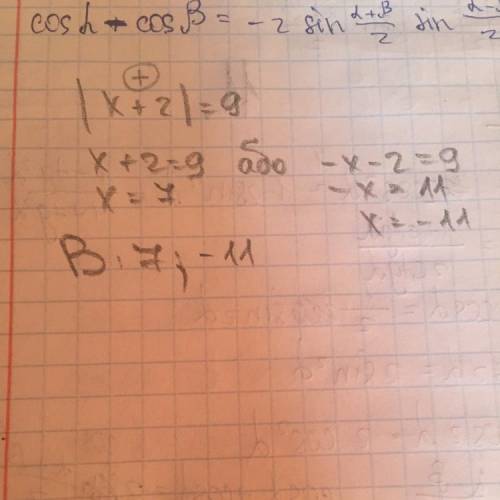 cosα - cosβ = -2 sin (α+β)/2 sin (α-
+
|x+2|=9
x+2=9 або -x-2=9
x=7 -x=11
x=-11
В: 7; -11